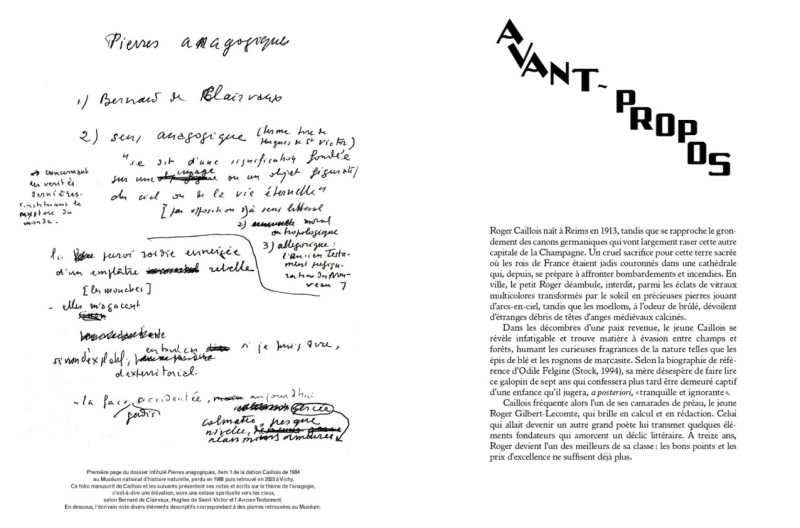 Pierres anagogiques
1) Bernard de Clairvaux
2) sens anagogique (terme tiré de
Hugues de St Victor)
"se dit d'une signification fondée
sur une image ou un objet figuratif
du ciel ou de la vie éternelle"
→ concernant
les vérités
dernières
mystère du
monde.
[par opposition 1) à sens littéral
2) moral
ou tropologique
3) allégorique :
l'Ancien Testa-
ment préfigu-
ration du Nou-
veau ]
la paroi roidie enneigée
d'un emplâtre rebelle
[les mouches]
- elles m'agacent
si je puis dire,
d'exterritorial.
- la face accidentée, aujourd'hui
colmatée, presque
nivelée,
AVANT-PROPOS
Roger Caillois naît à Reims en 1913, tandis que se rapproche le gron-
dement des canons germaniques qui vont largement raser cette autre
capitale de la Champagne. Un cruel sacrifice pour cette terre sacrée
où les rois de France étaient jadis couronnés dans une cathédrale
qui, depuis, se prépare à affronter bombardements et incendies. En
ville, le petit Roger déambule, interdit, parmi les éclats de vitraux
multicolores transformés par le soleil en précieuses pierres jouant
d'arcs-en-ciel, tandis que les moellons, à l'odeur de brûlé, dévoilent
d'étranges débris de têtes d'anges médiévaux calcinés.
Dans les décombres d'une paix revenue, le jeune Caillois se
révèle infatigable et trouve matière à évasion entre champs et
forêts, humant les curieuses fragrances de la nature telles que les
épis de blé et les rognons de marcasite. Selon la biographie de réfé-
rence d'Odile Felgine (Stock, 1994), sa mère désespère de faire lire
ce galopin de sept ans qui confessera plus tard être demeuré captif
d'une enfance qu'il jugera, a posteriori, « tranquille et ignorante ».
Caillois fréquente alors l'un de ses camarades de préau, le jeune
Roger Gilbert-Lecomte, qui brille en calcul et en rédaction. Celui
qui allait devenir un autre grand poète lui transmet quelques élé-
ments fondateurs qui amorcent un déclic littéraire. À treize ans,
Roger devient l'un des meilleurs de sa classe : les bons points et les
prix d'excellence ne suffisent déjà plus.
Première page du dossier intitulé Pierres anagogiques, item 1 de la dation Caillois de 1984
au Muséum national d'histoire naturelle, perdu en 1988 puis retrouvé en 2023 à Vichy.
Ce folio manuscrit de Caillois et les suivants présentent ses notes et écrits sur le thème de l'anagogie,
c'est-à-dire une élévation, voire une extase spirituelle vers les cieux,
selon Bernard de Clairvaux, Hughes de Saint-Victor et l'Ancien Testament.
En dessous, l'écrivain note divers éléments descriptifs correspondant à des pierres retrouvées au Muséum.